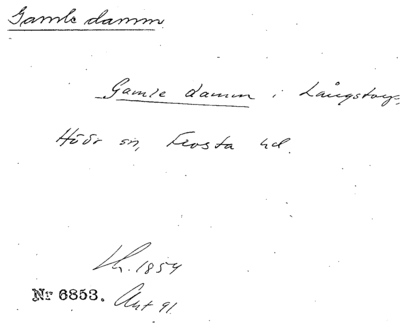 Gamle damm
Gamle damm i Långstorp,
Höör sn, Frosta hd.
Kr. 1854
Nr 6853. Akt 91